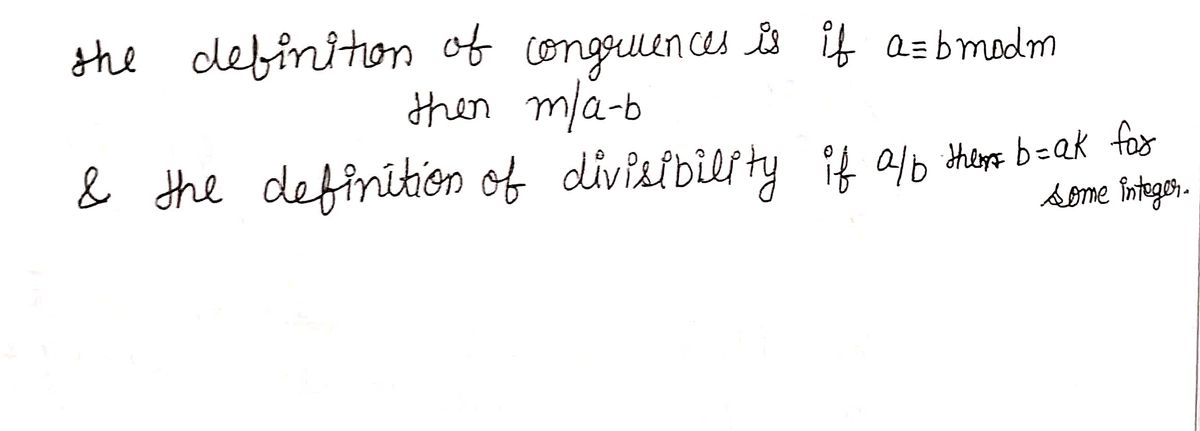 the definition of congruences is if a≡bmodm
then m/a-b
& the definition of divisibility if a/b then b=ak for
some integer.